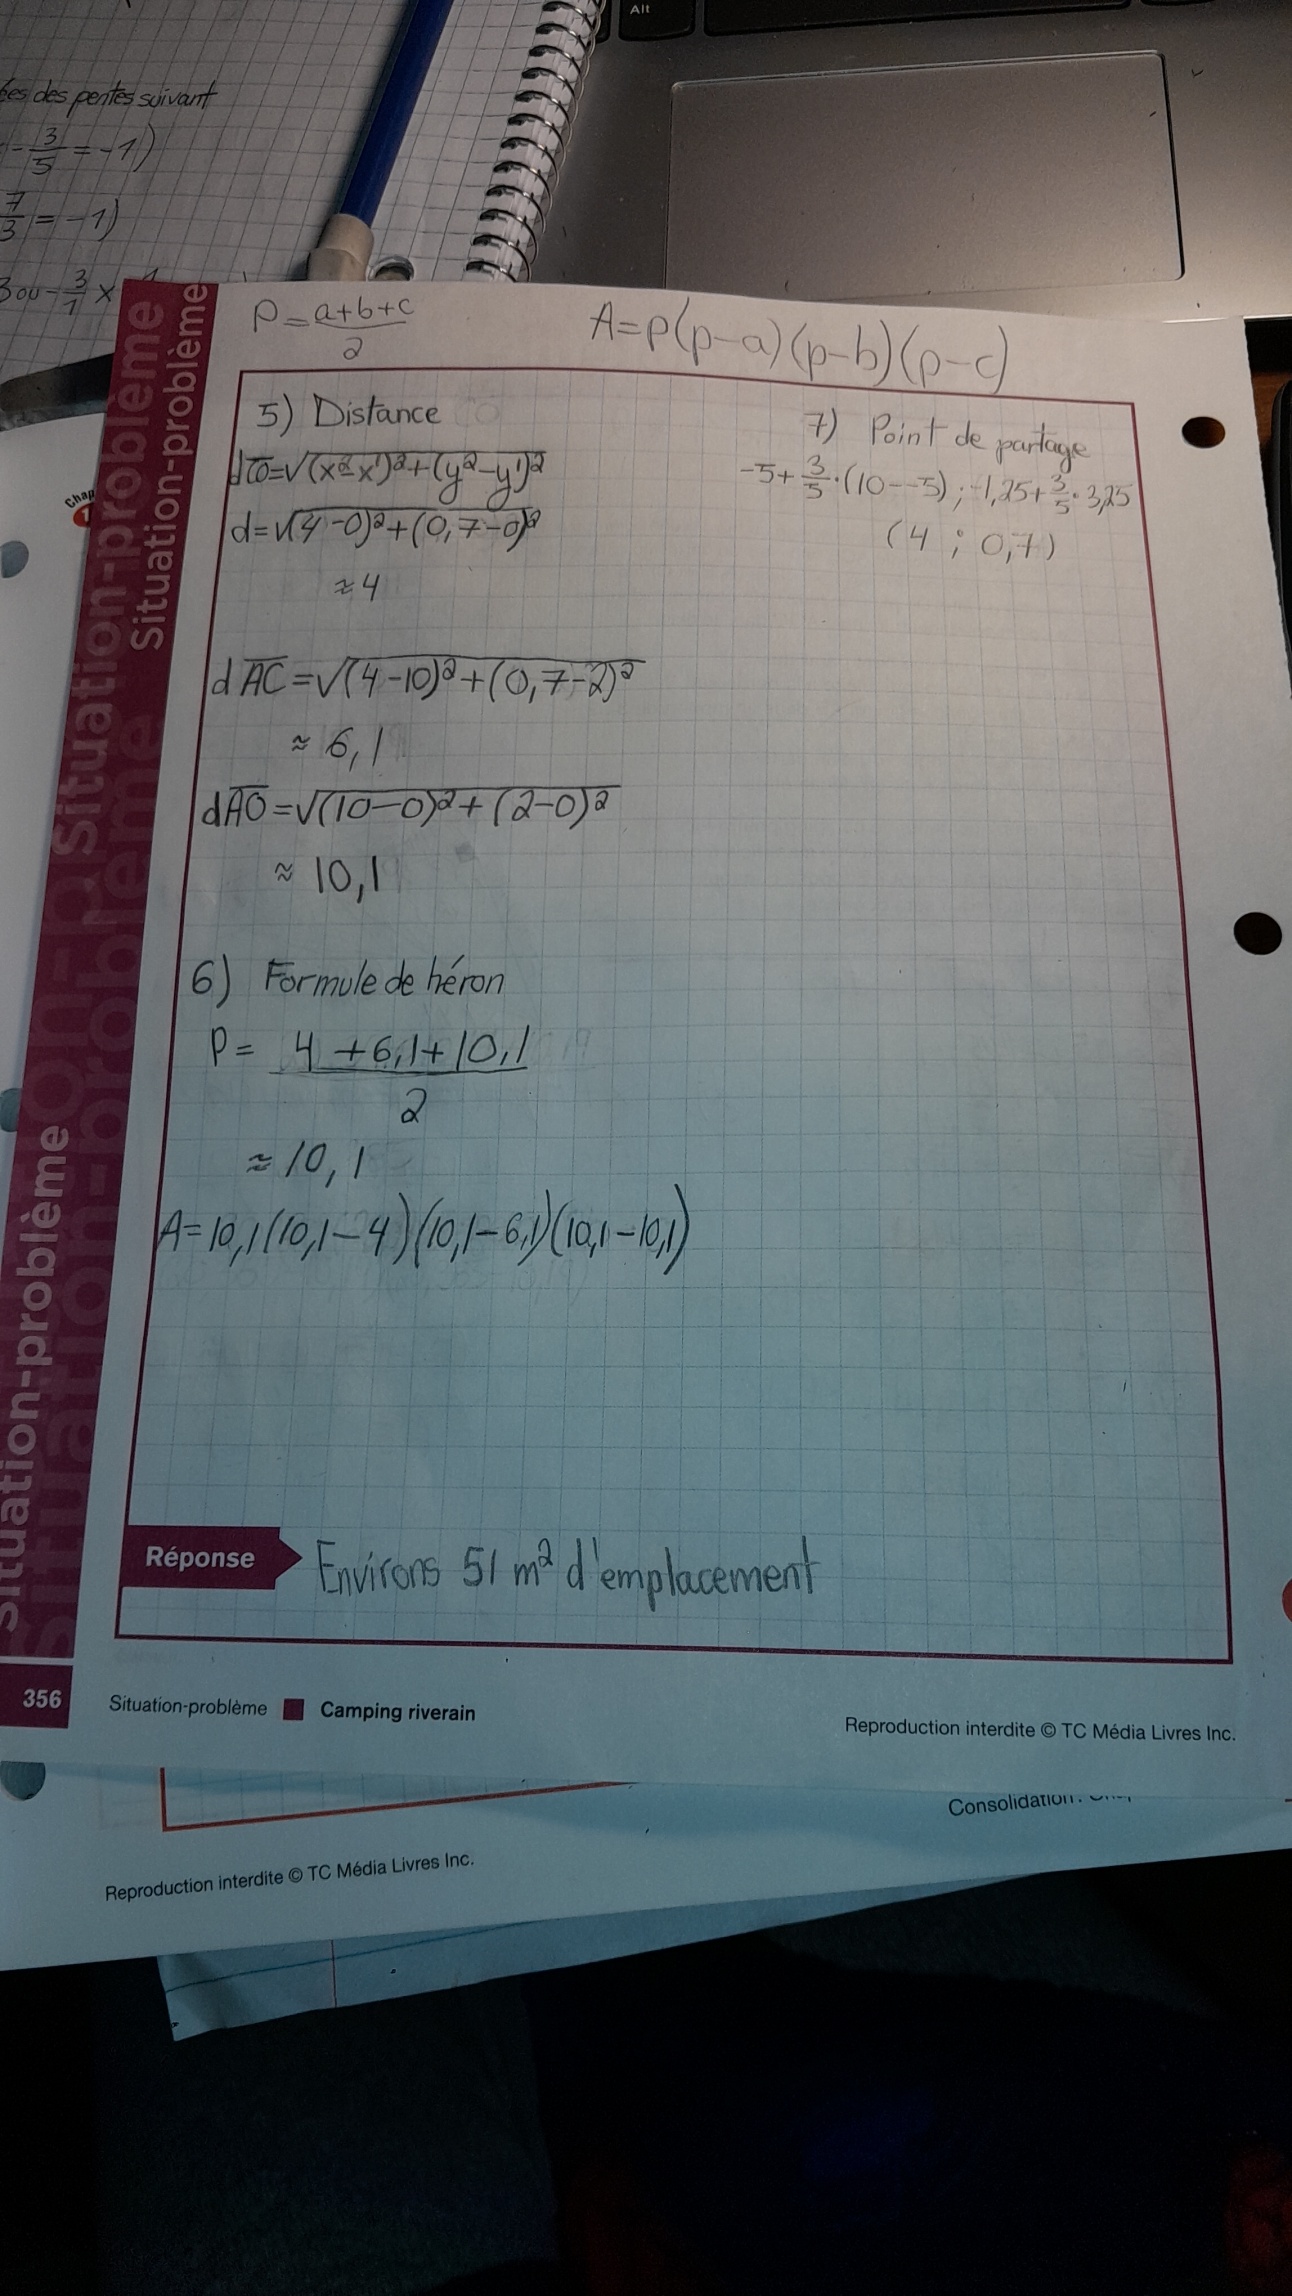 Alt
ées des pentes suivant
- 3/5 = -1)
7/3 = -1)
3 ou - 3/1 x
P = a+b+c / 2
A=p(p-a)(p-b)(p-c)
Situation-problème
Situation-problème
Situation-problème
Chap
5) Distance
d CO = √(x²-x¹)²+(y²-y¹)²
d=√(4-0)²+(0,7-0)²
≈ 4
d AC = √(4-10)²+(0,7-2)²
≈ 6,1
d AO = √(10-0)²+(2-0)²
≈ 10,1
6) Formule de héron
P = 4 + 6,1 + 10,1 / 2
≈ 10,1
A= 10,1(10,1-4)(10,1-6,1)(10,1-10,1)
7) Point de partage
-5+ 3/5 · (10--5) ; -1,25+ 3/5 · 3,25
(4 ; 0,7)
Réponse
Environs 51 m² d'emplacement
356
Situation-problème ■ Camping riverain
Reproduction interdite © TC Média Livres Inc.
Consolidation :
Reproduction interdite © TC Média Livres Inc.